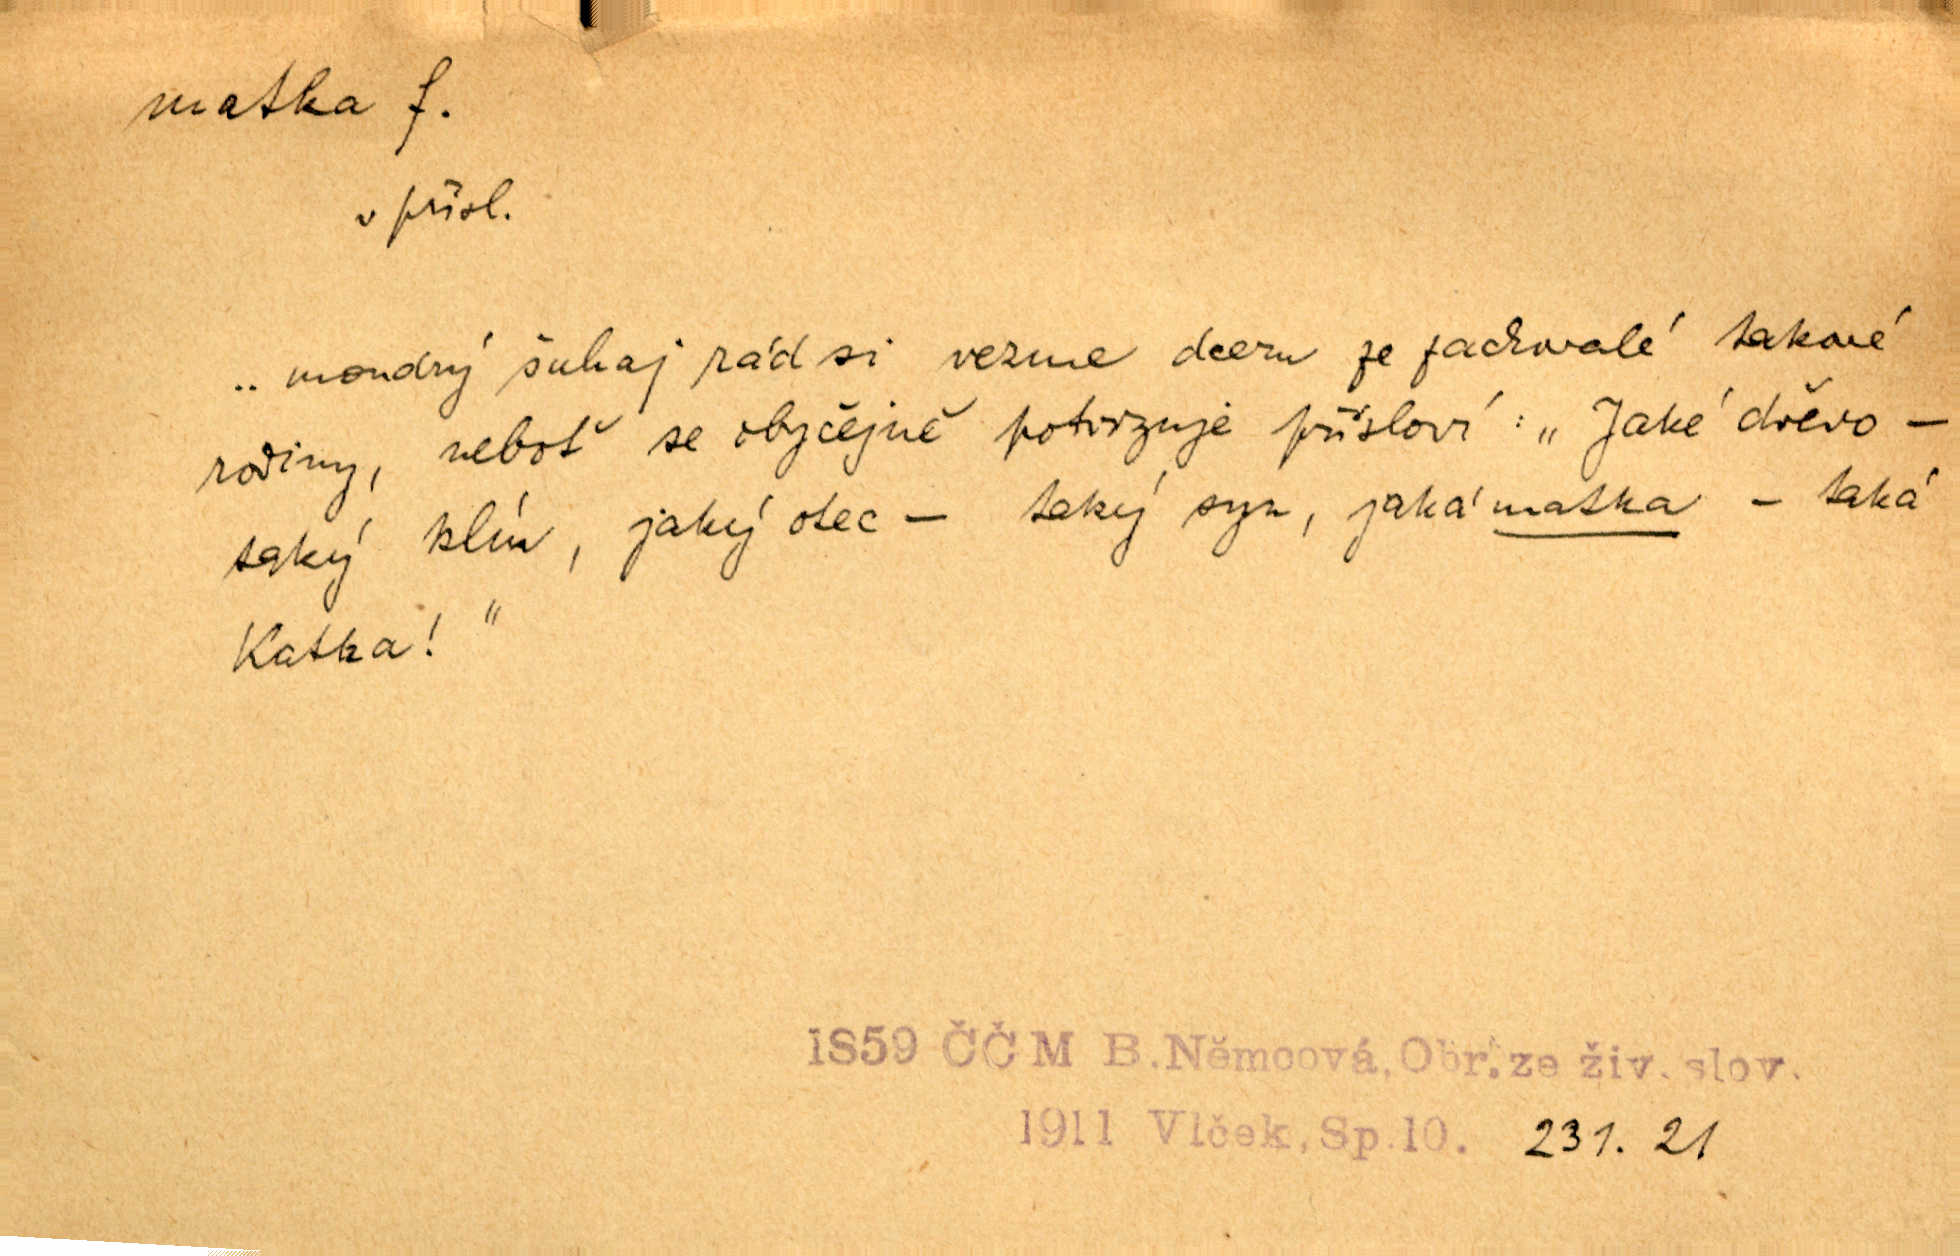 matka f.
v přísl.
.. moudrý šuhaj rád si vezme dceru ze zachovalé takové
rodiny, neboť se obyčejně potvrzuje přísloví: „Jaké dřevo –
taký klín, jaký otec – taký syn, jaká matka – taká
Katka!“
1859 ČČM B.Němcová, Obr. ze živ. slov.
1911 Vlček, Sp.10. 231. 21